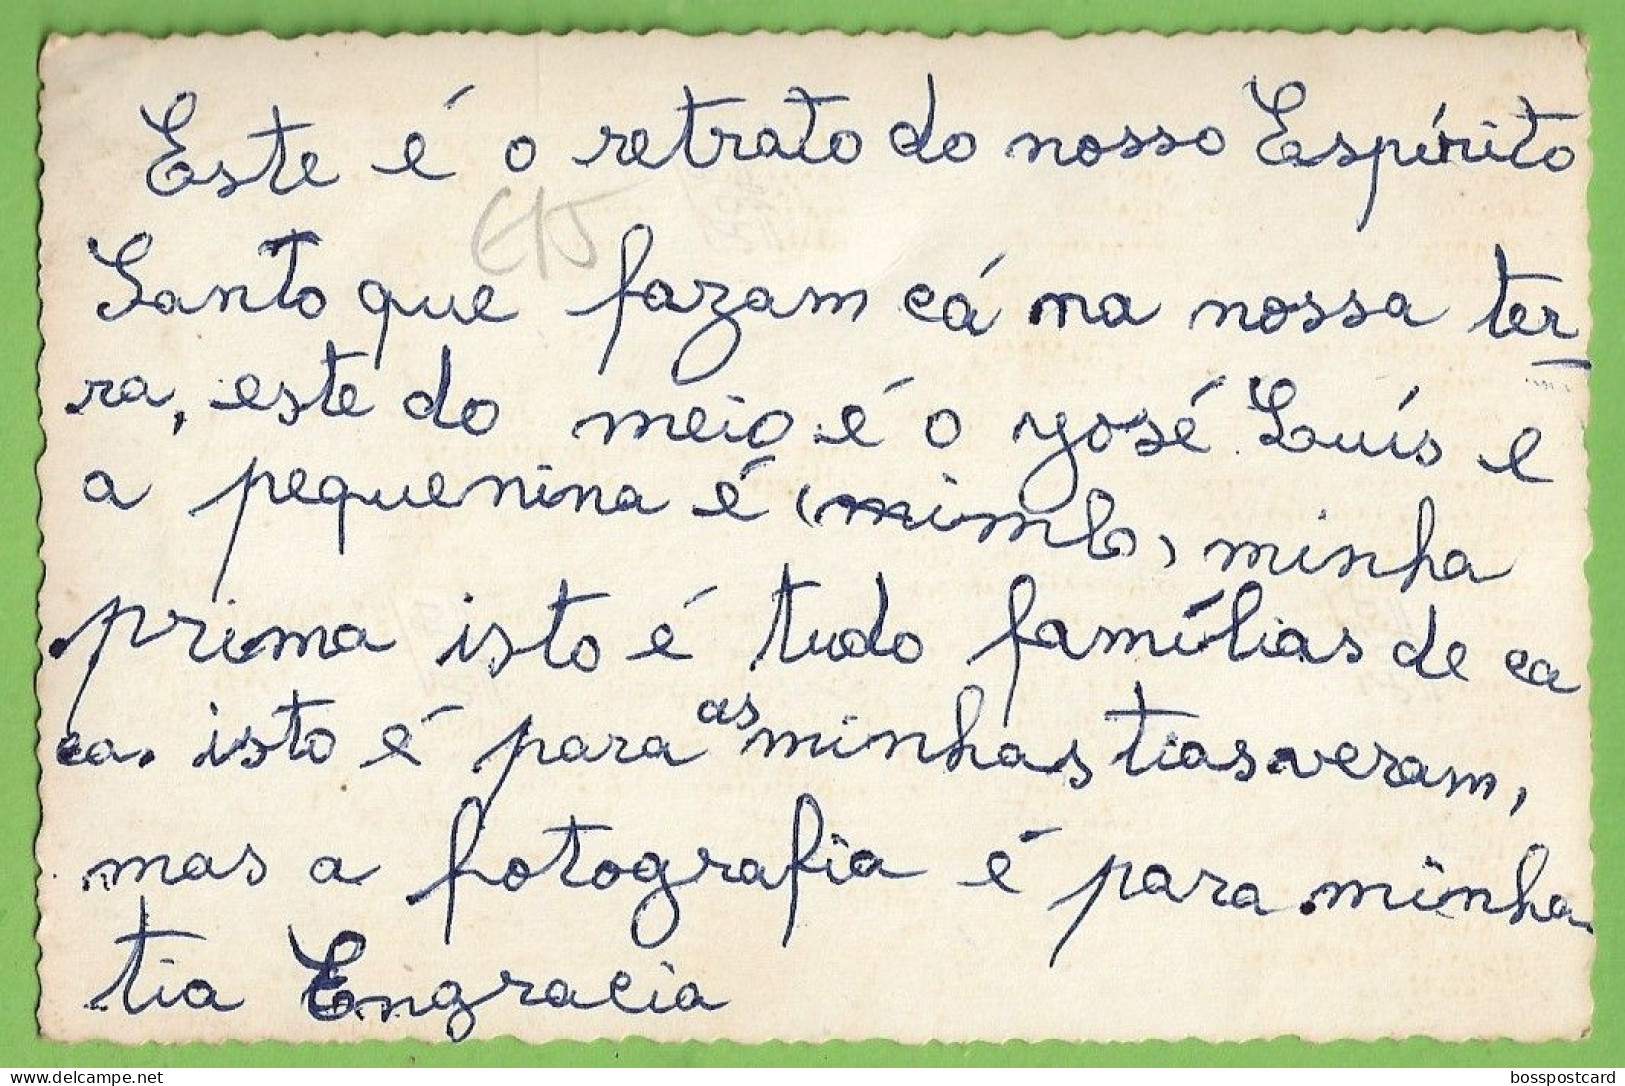 Este é o retrato do nosso Espírito
€15
Santo que fazam cá na nossa ter-
ra, este do meio é o José Luís e
a pequenina é minha
prima isto é tudo famílias de ca
ca. isto é para as minhas tias veram,
mas a fotografia é para minha
tia Engracia
bosspostcard